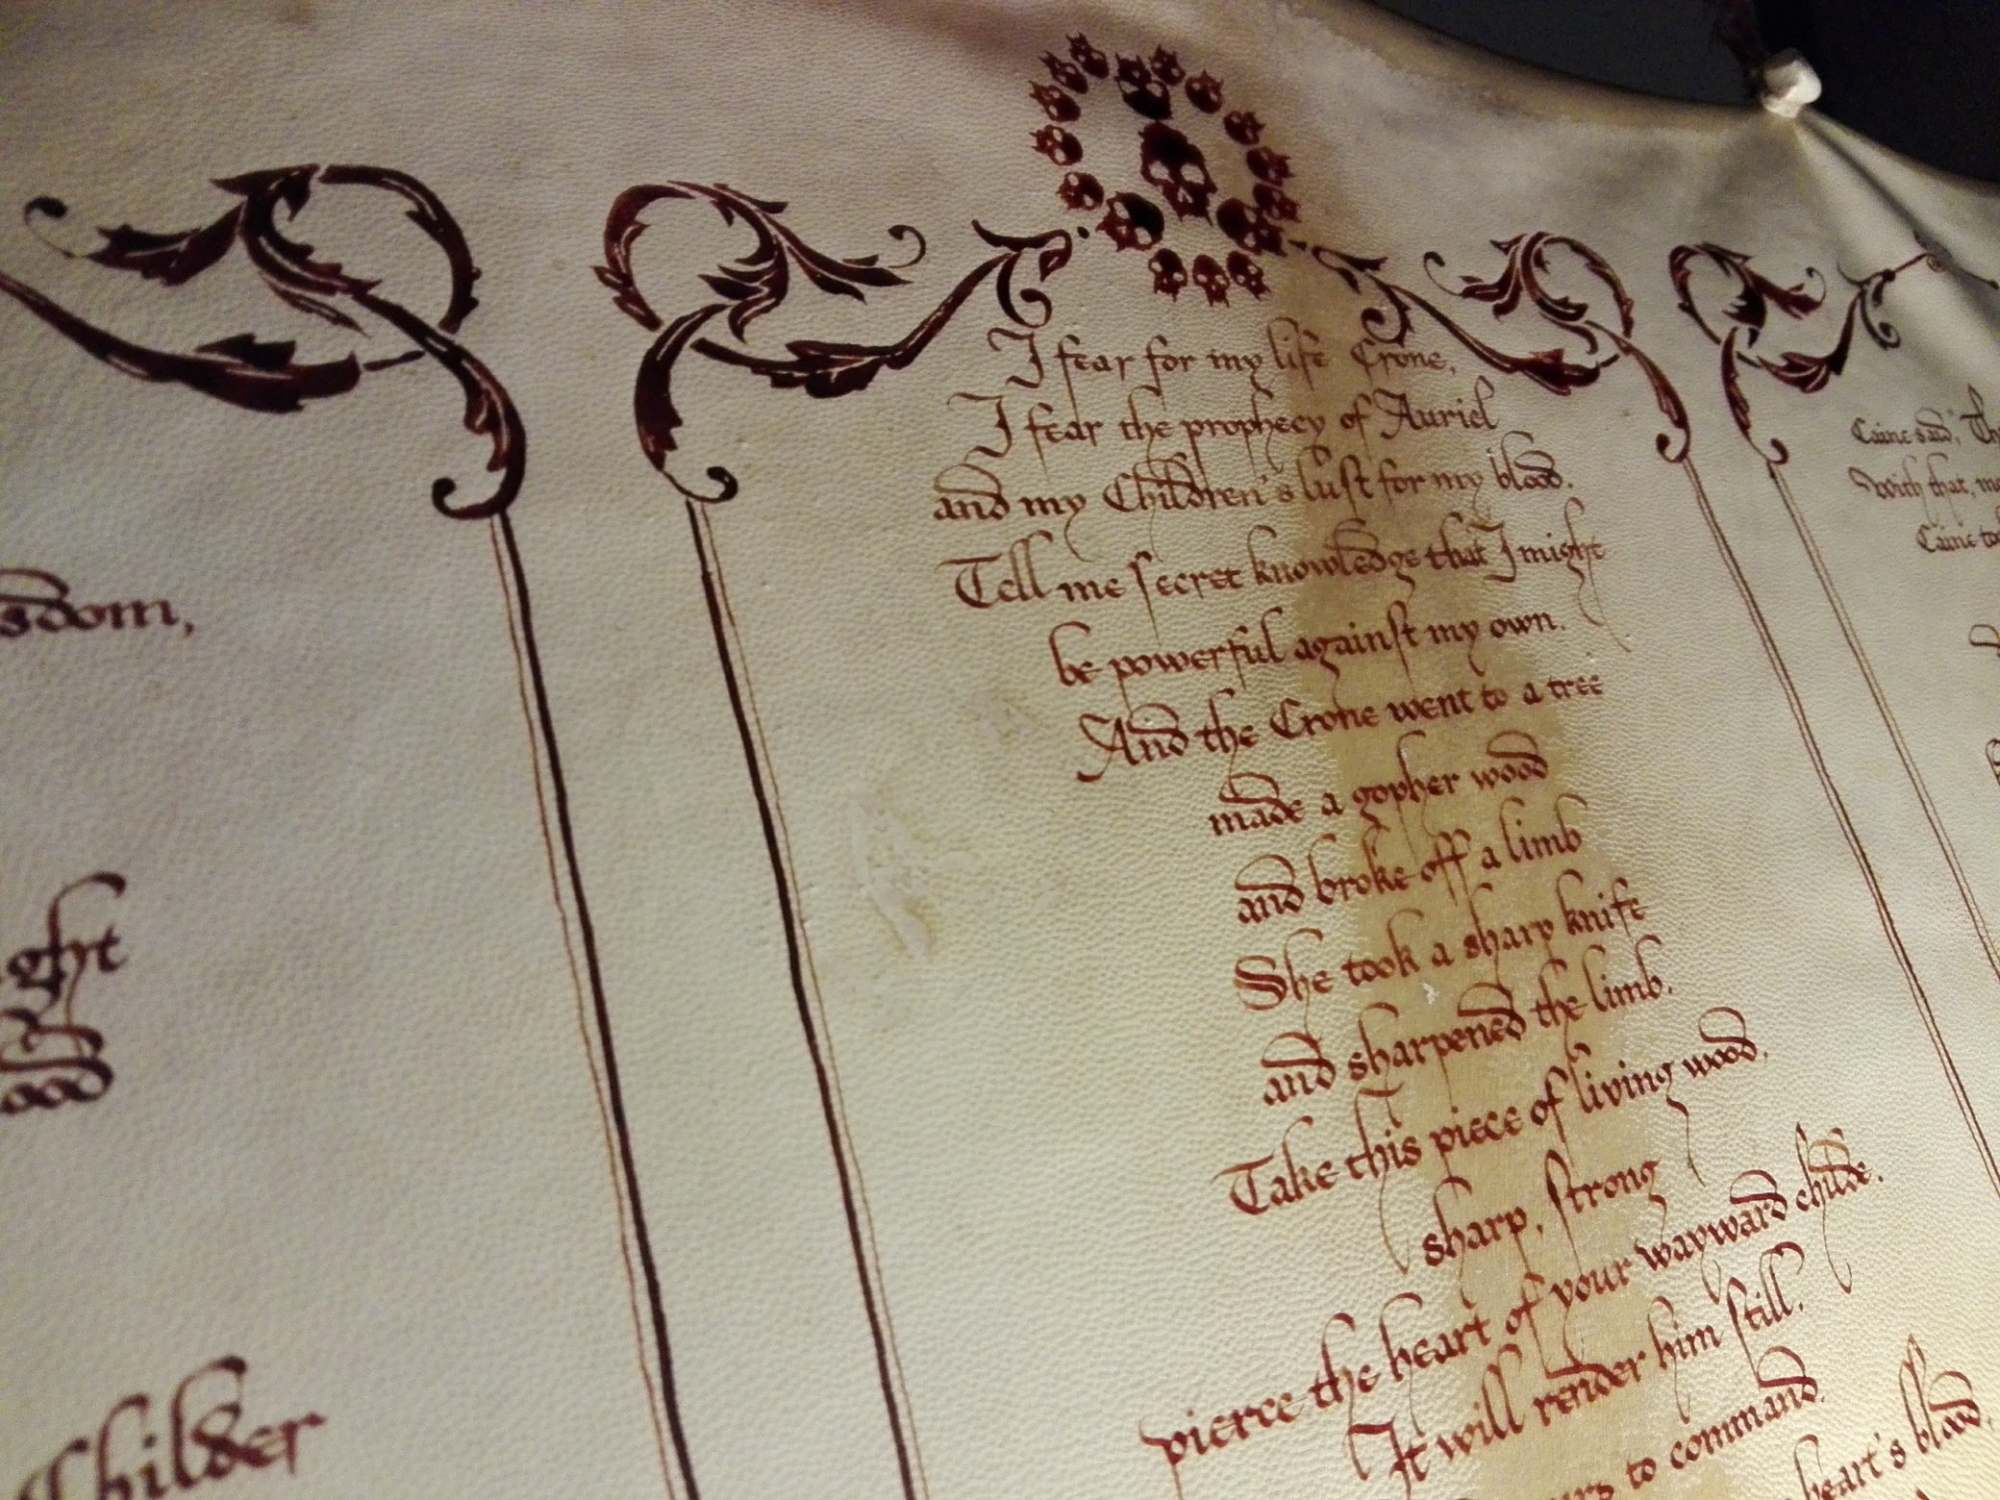 sdom,
ght
ood
Childer
I fear for my life Crone,
I fear the prophecy of Auriel
and my Children's lust for my blood.
Tell me secret knowledge that I might
be powerful against my own.
And the Crone went to a tree
made a gopher wood
and broke off a limb
She took a sharp knife
and sharpened the limb.
Take this piece of living wood,
sharp, strong
pierce the heart of your wayward childe.
It will render him still,
to command.
heart's blood,
Caine said, "Th
With that, m
Caine to